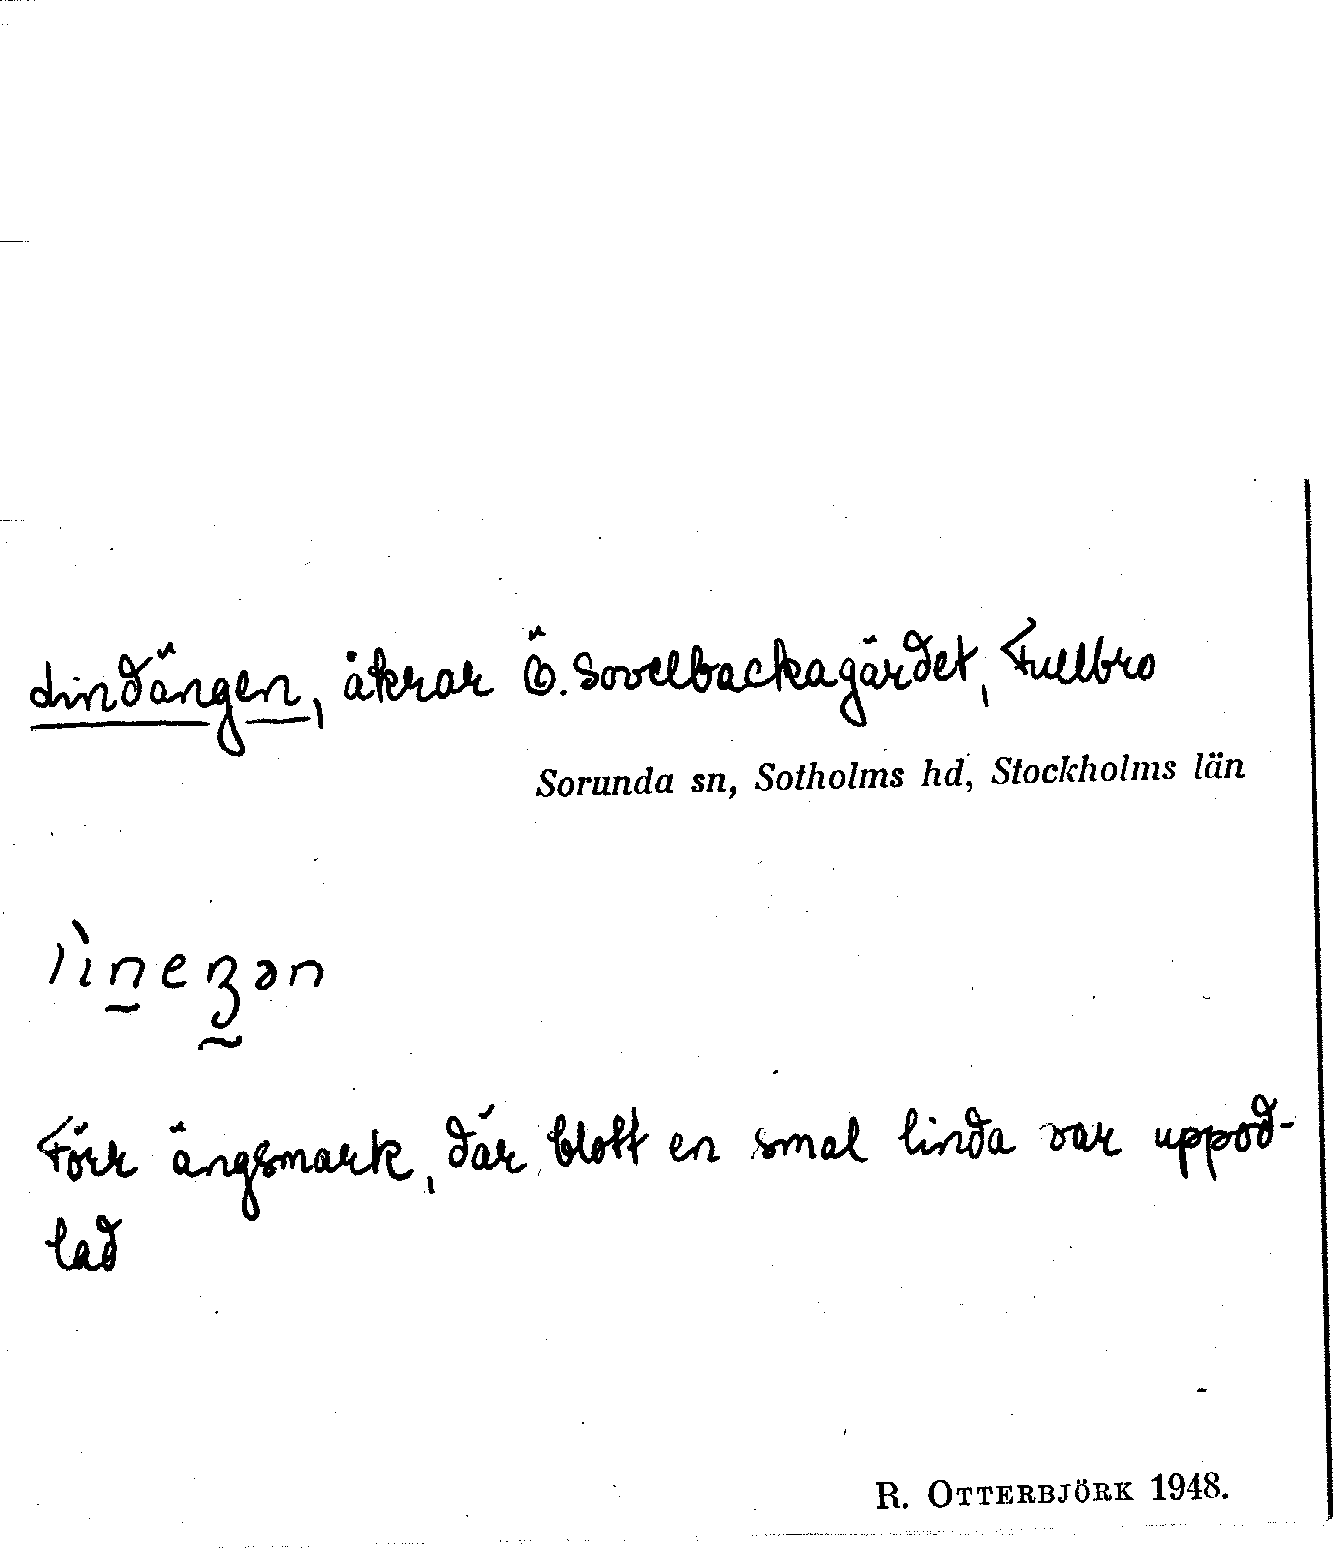 Lindängen, åkrar Ö. Sovelbackagärdet, Fullbro
Sorunda sn, Sotholms hd, Stockholms län
lìneŋən
Förr ängsmark, där blott en smal linda var uppod-
lad
R. OTTERBJÖRK 1948.